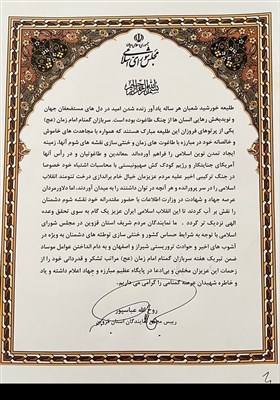 جمهوری اسلامی ایران
مجلس شورای اسلامی
طلیعه خورشید شعبان هر ساله یادآور زنده شدن امید در دل های مستضعفان جهان
و نویدبخش رهایی انسان ها از چنگ طاغوت بوده است. سربازان گمنام امام زمان (عج)
یکی از پرتوهای فروزان این طلیعه مبارک هستند که همواره با مجاهدت های خاموش
و خالصانه خود در مبارزه با طاغوت های زمان و خنثی سازی نقشه های شوم آنها، زمینه
ایجاد تمدن نوین اسلامی را فراهم آورده‌اند. معاندین و طاغوتیان و در رأس آنها
آمریکای جنایتکار و رژیم کودک کش صهیونیستی با محاسبات اشتباه خود خصوصا
در جنگ ترکیبی اخیر علیه مردم عزیزمان خیال خام براندازی درخت تنومند انقلاب
اسلامی را در سر پرورانده و هر آنچه در توان داشتند را به میدان آوردند. اما دلاورمردان
عرصه جهاد و شهادت در وزارت اطلاعات با حضور مقتدرانه خود نقشه شوم دشمنان
را نقش بر آب کردند تا این انقلاب اسلامی ایران عزیز یک گام به سوی تحقق وعده
الهی نزدیک تر گردد. ما نمایندگان مردم شریف استان قزوین در مجلس شورای
اسلامی با توجه به شرایط حساس کشور و خنثی سازی توطئه های دشمنان به ویژه در
آشوب های اخیر و حوادث تروریستی شیراز و اصفهان و به دام انداختن عوامل موساد
ضمن تبریک هفته سربازان گمنام امام زمان (عج) مراتب تشکر و قدردانی خود را از
زحمات این عزیزان مخلص و بی‌ادعا در پایگاه عظیم مبارزه و جهاد اعلام داشته و یاد
و خاطره شهیدان عرصه گمنامی را گرامی می داریم.
روح الله عباسپور
رییس مجمع نمایندگان استان قزوین